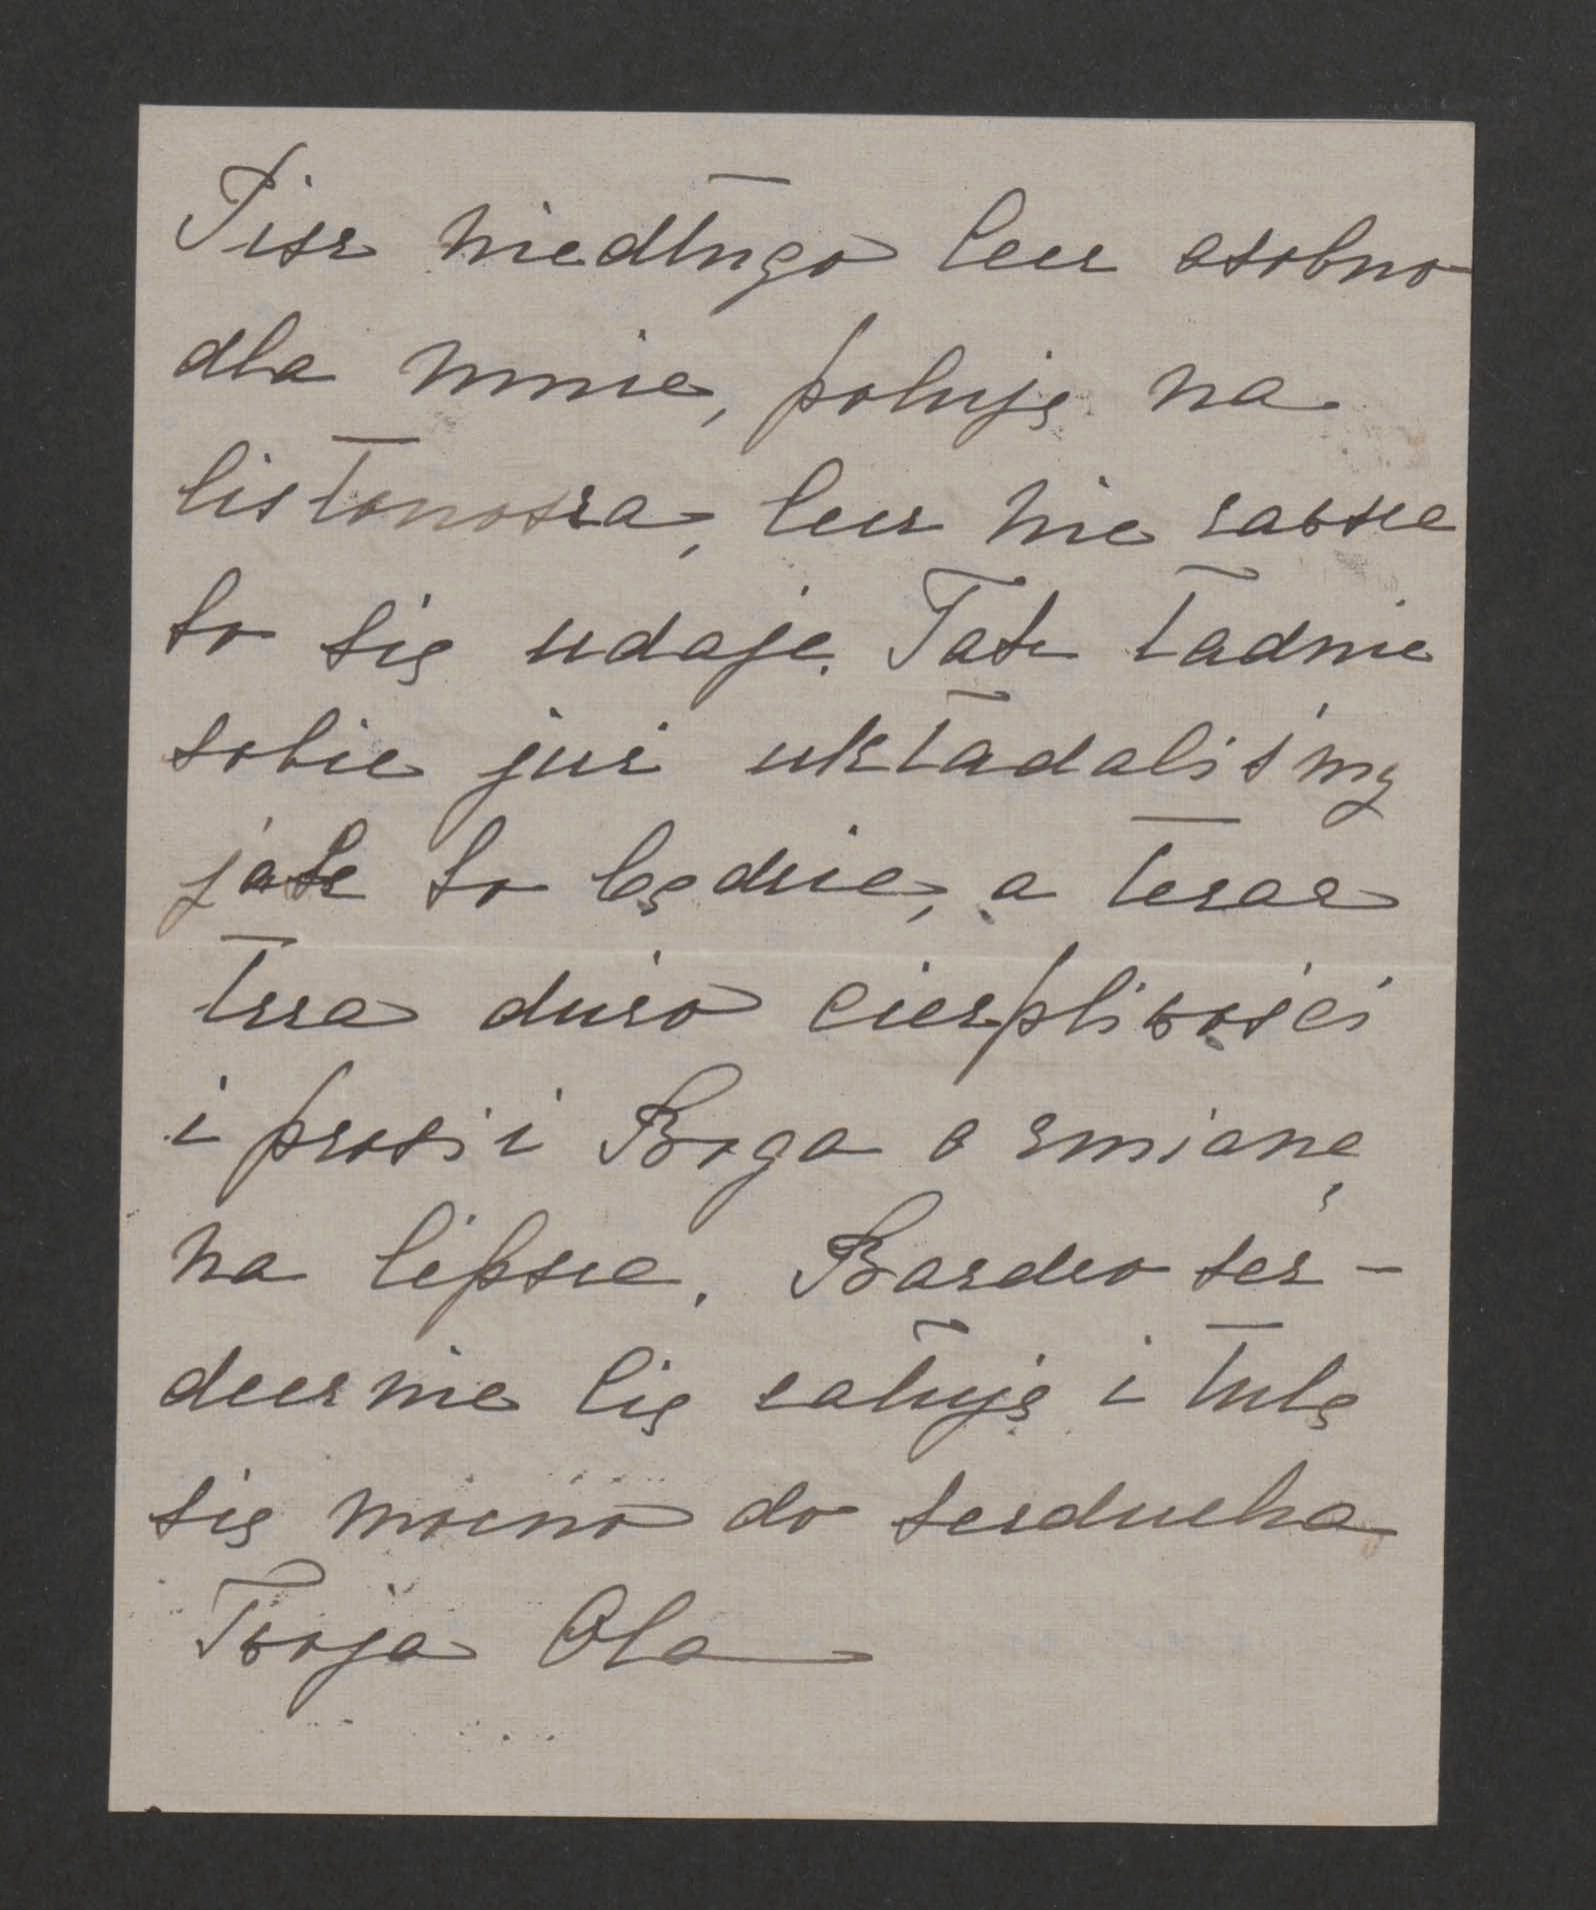 Pisz niedługo lecz osobno
dla mnie, poluję na
listonosza, lecz nie zawsze
to się udaje. Tak ładnie
sobie już układaliśmy
jak to będzie, a teraz
trza dużo cierpliwości
i prosić Boga o zmianę
na lepsze. Bardzo ser-
decznie Cię całuję i tulę
się mocno do serducha
Twoja Ola